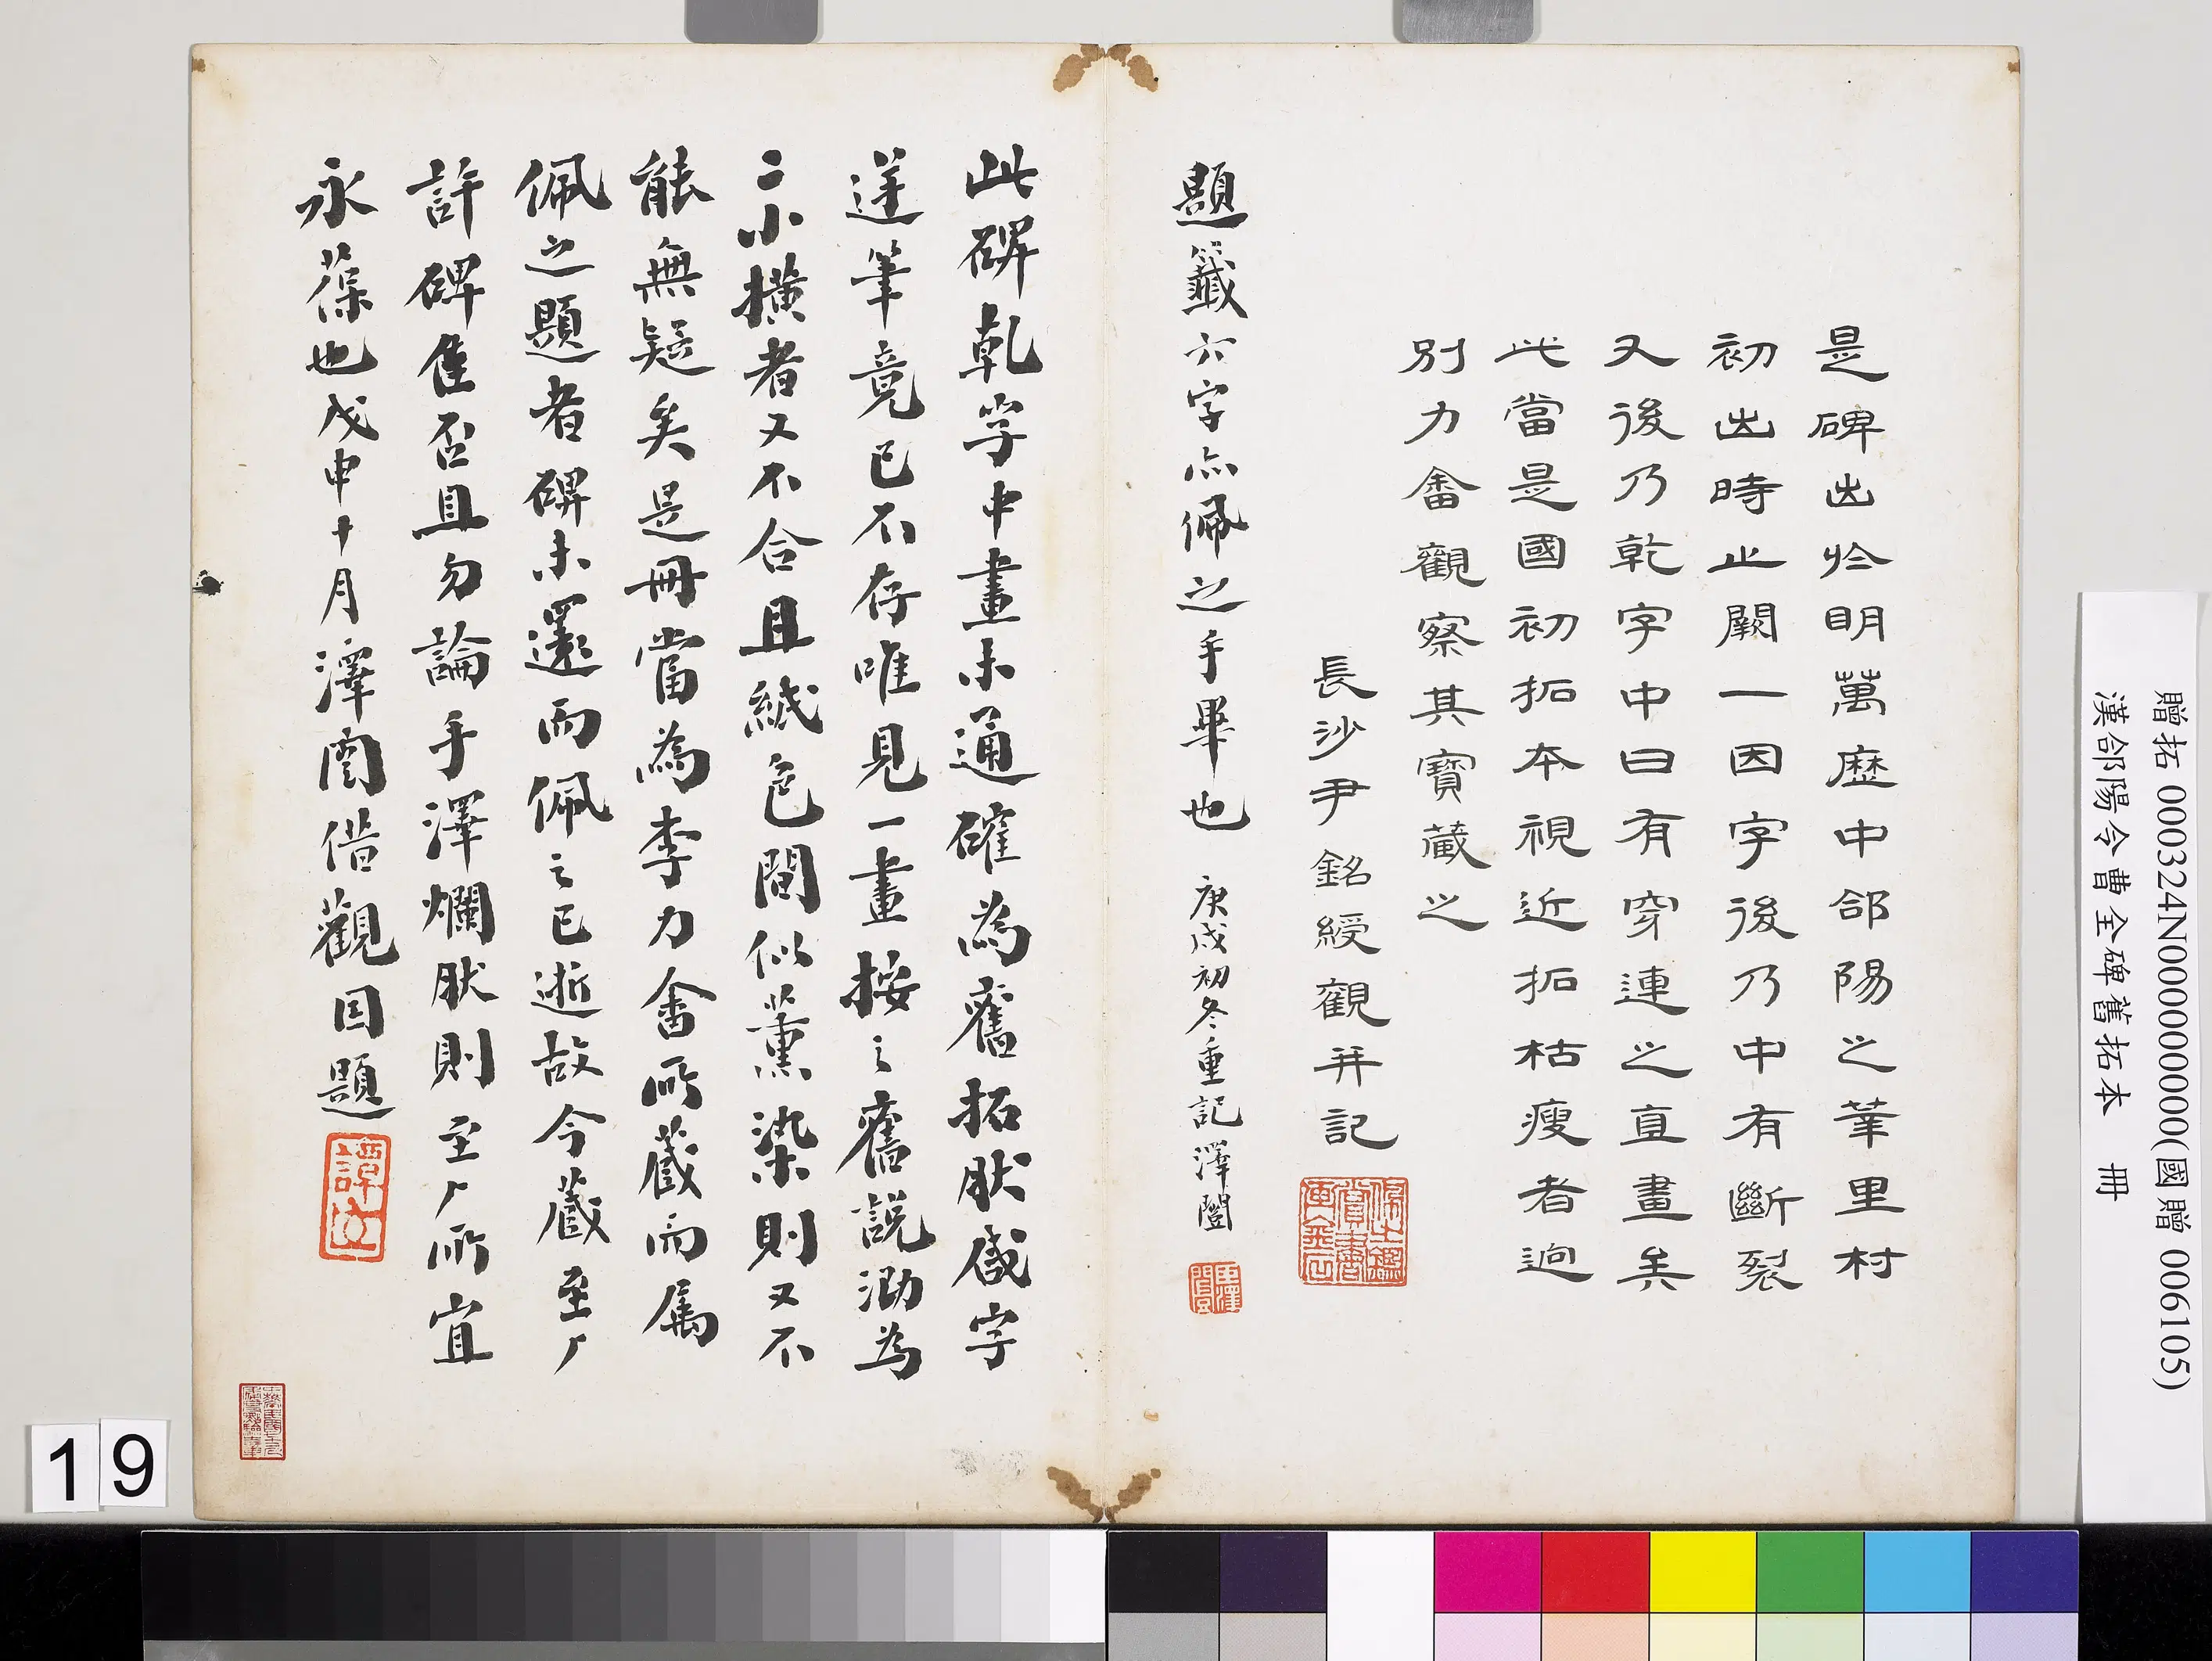 是碑出於明萬歷中郃陽之莘里村
初出時止闕一因字後乃中有斷裂
又後乃乾字中曰有穿連之直畫矣
此當是國初拓本視近拓枯瘦者迥
別力畬觀察其寶藏之
長沙尹銘綬觀并記
題籤六字亦佩之手畢也 庚戌初冬重記澤闓
此碑乾字中畫未通確為舊拓肰咸字
逆筆竟已不存唯見一畫按之舊說泐為
二小橫者又不合且紙色間似薰染則又不
能無疑矣是冊當為李力畬所藏而属
佩之題者碑未還而佩之已逝故今藏至厂
許碑隹否且勿論手澤爛肰則至厂所宜
永葆也戊申十月澤闓借觀因題
譚
19
贈拓 000324N000000000(國贈 006105)
漢郃陽令曹全碑舊拓本 冊